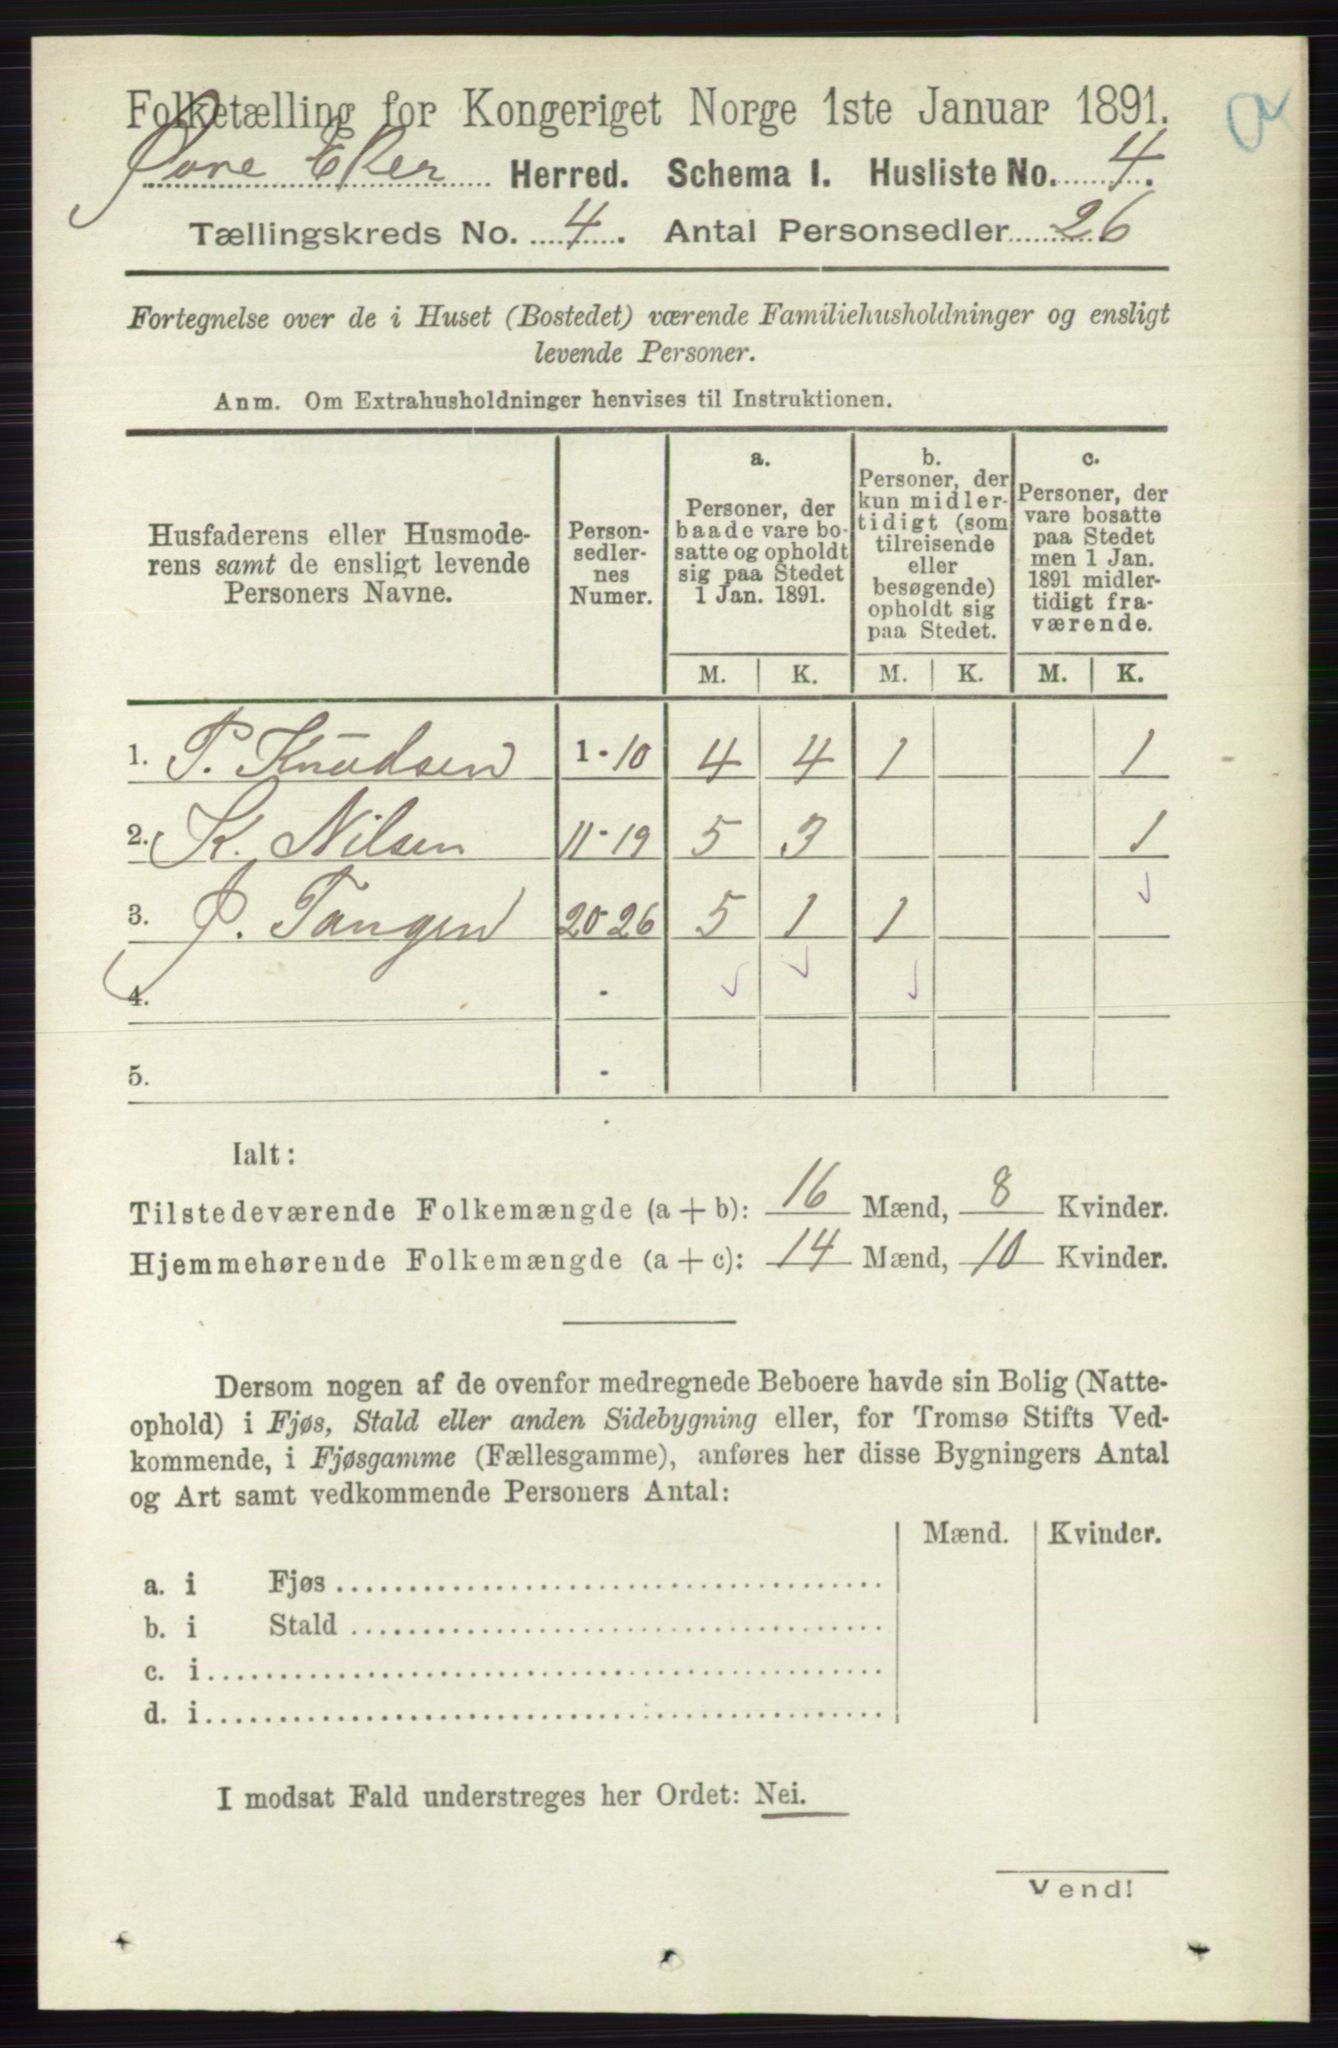 Folketælling for Kongeriget Norge 1ste Januar 1891.
Øvre Eker Herred. Schema I. Husliste No. 4.
Tællingskreds No. 4. Antal Personsedler 26
Fortegnelse over de i Huset (Bostedet) værende Familiehusholdninger og ensligt
levende Personer.
Anm. Om Extrahusholdninger henvises til Instruktionen.
Husfaderens eller Husmode-
rens samt de ensligt levende
Personers Navne.
Person-
sedler-
nes
Numer.
a.
Personer, der
baade vare bo-
satte og opholdt
sig paa Stedet
1 Jan. 1891.
b.
Personer, der
kun midler-
tidigt (som
tilreisende
eller
besøgende)
opholdt sig
paa Stedet.
c.
Personer, der
vare bosatte
paa Stedet
men 1 Jan.
1891 midler-
tidigt fra-
værende.
M. K. M. K. M. K.
1. P. Knudsen 1-10 4 4 1 1
2. K. Nilsen 11-19 5 3 1
3. J. Tangen 20-26 5 1 1
4. -
5. -
Ialt:
Tilstedeværende Folkemængde (a + b): 16 Mænd, 8 Kvinder.
Hjemmehørende Folkemængde (a + c): 14 Mænd, 10 Kvinder.
Dersom nogen af de ovenfor medregnede Beboere havde sin Bolig (Natte-
ophold) i Fjøs, Stald eller anden Sidebygning eller, for Tromsø Stifts Ved-
kommende, i Fjøsgamme (Fællesgamme), anføres her disse Bygningers Antal
og Art samt vedkommende Personers Antal:
Mænd. Kvinder.
a. i Fjøs
b. i Stald
c. i
d. i
I modsat Fald understreges her Ordet: Nei.
Vend!